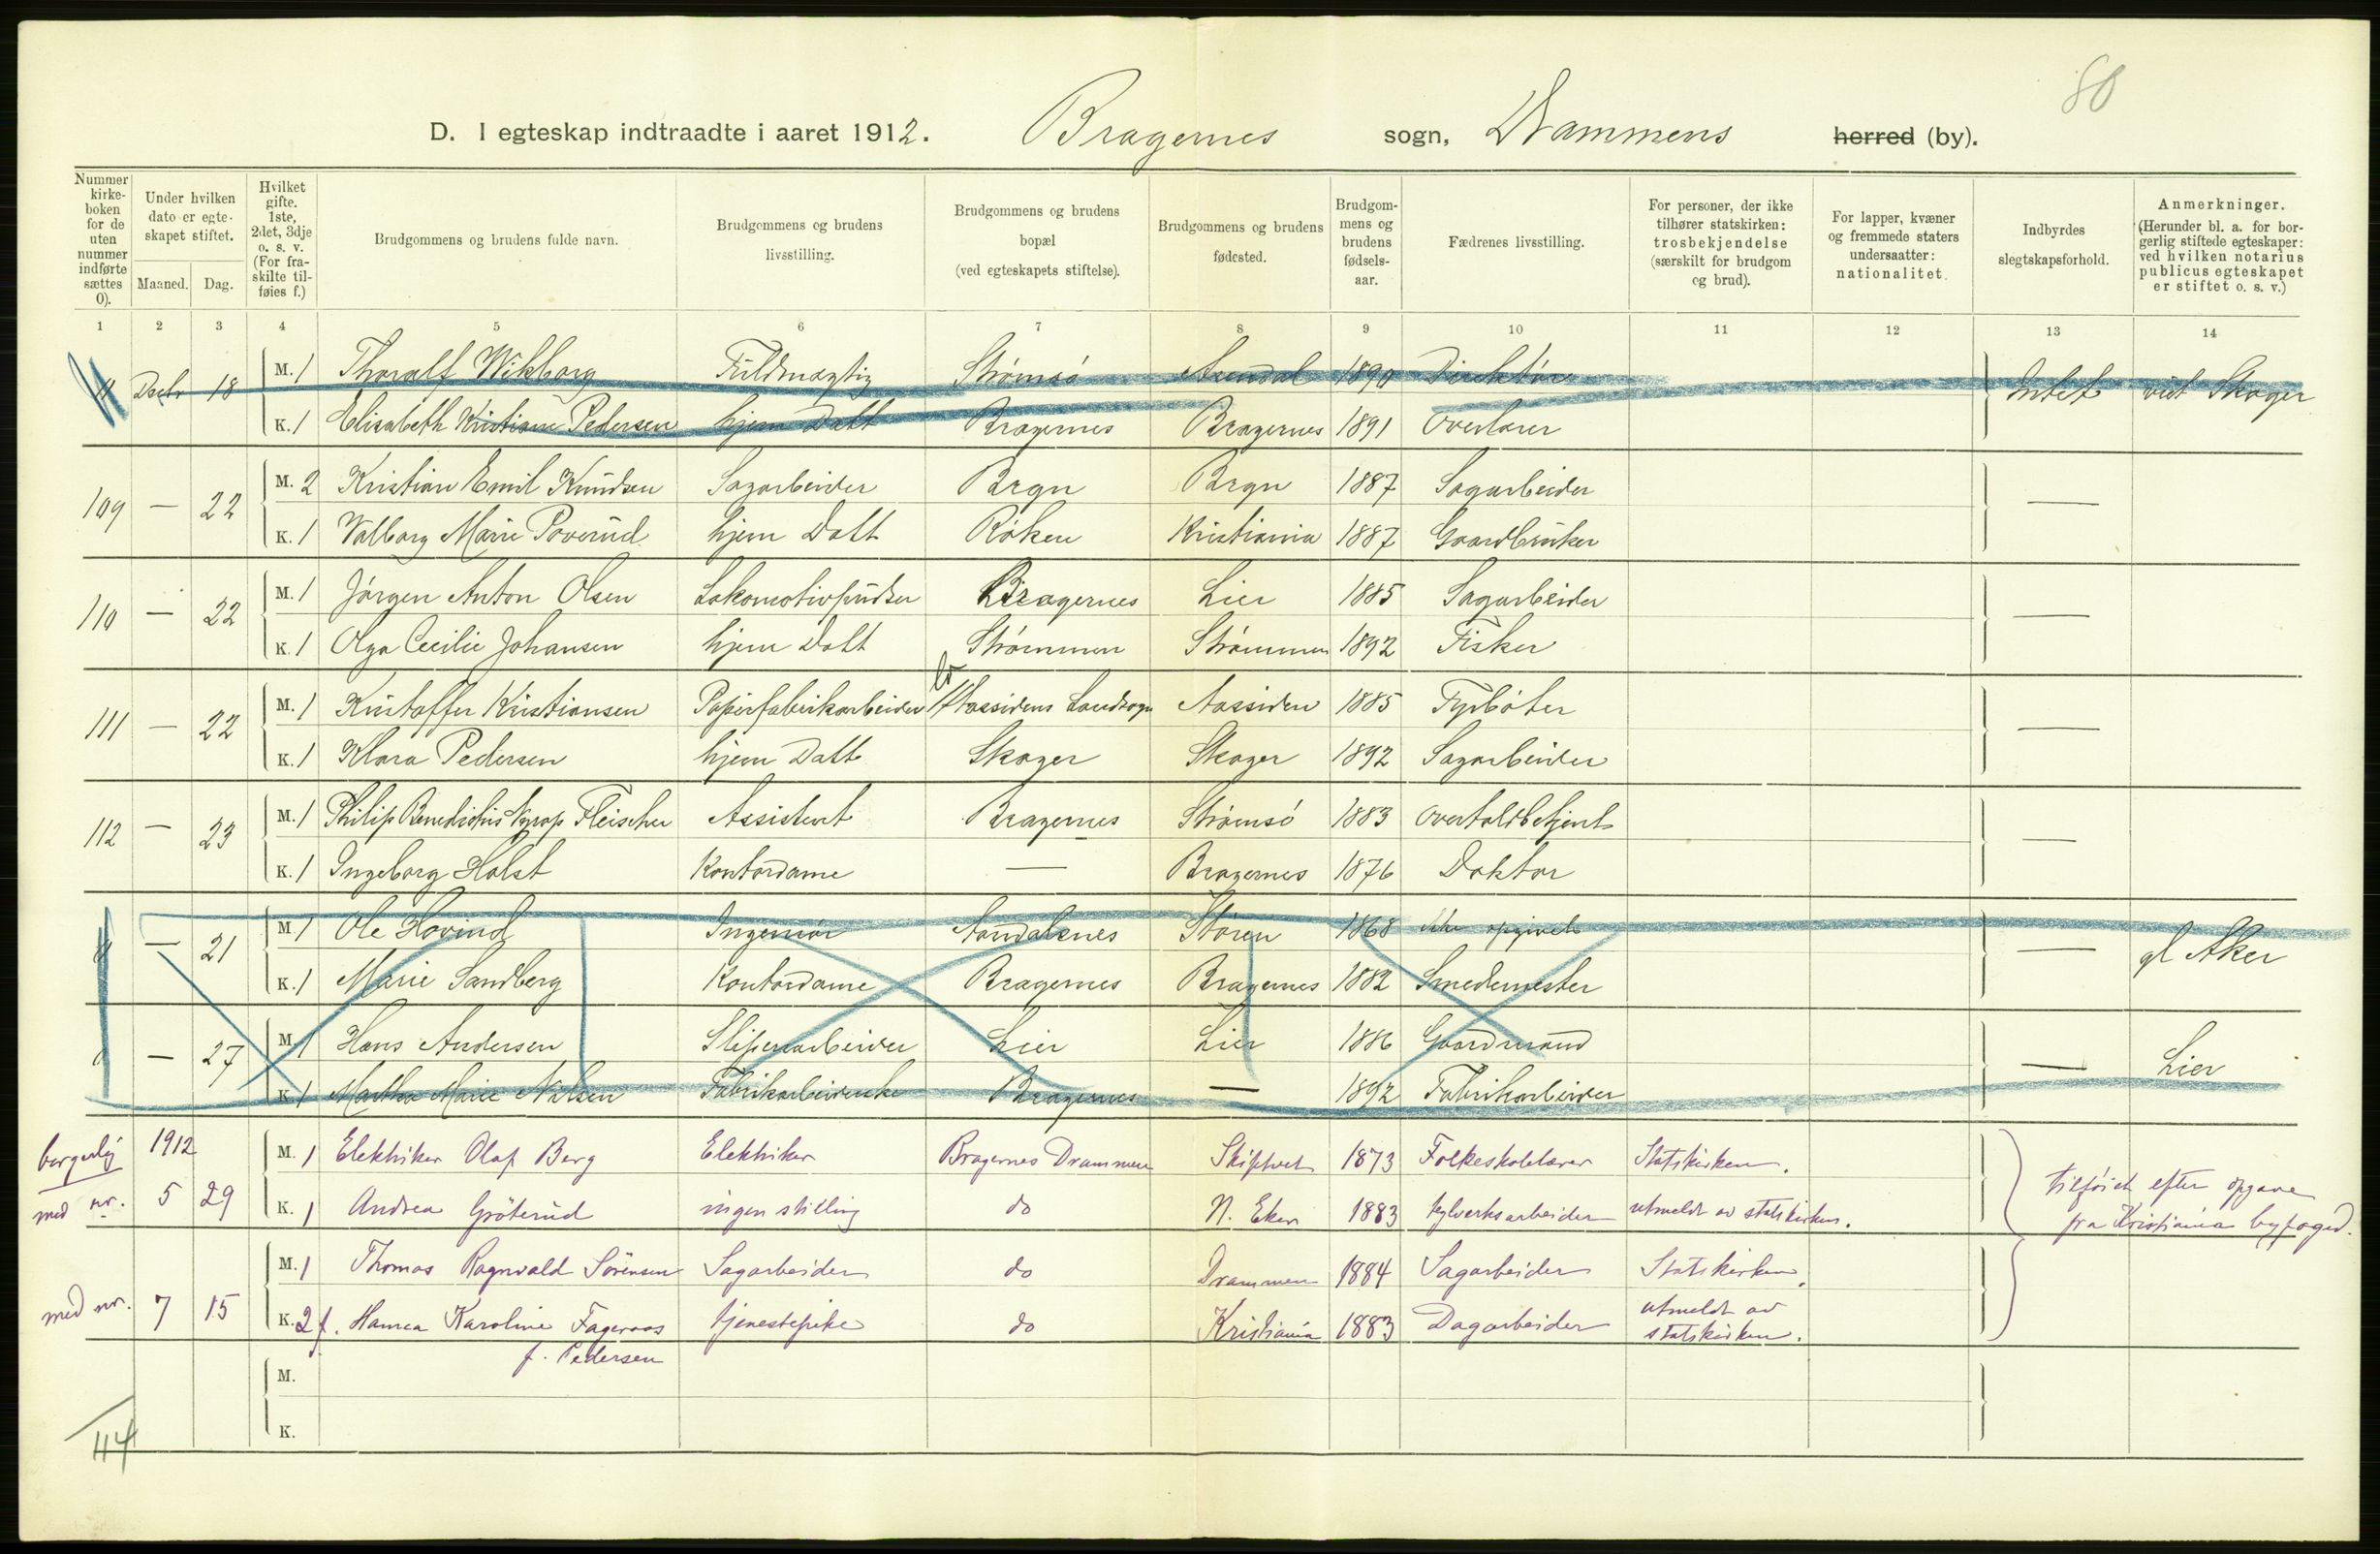 80
D. I egteskap indtraadte i aaret 1912. Bragernes sogn, Drammens herred (by).
Nummer kirkeboken for de uten nummer indførte sættes 0).
Under hvilken dato er egteskapet stiftet.
Maaned. Dag.
Hvilket gifte. 1ste, 2det, 3dje o. s. v. (For fraskilte tilføies f.)
Brudgommens og brudens fulde navn.
Brudgommens og brudens livsstilling.
Brudgommens og brudens bopæl (ved egteskapets stiftelse).
Brudgommens og brudens fødested.
Brudgommens og brudens fødselsaar.
Fædrenes livsstilling.
For personer, der ikke tilhører statskirken: trosbekjendelse (særskilt for brudgom og brud).
For lapper, kvæner og fremmede staters undersaatter: nationalitet.
Indbyrdes slegtskapsforhold.
Anmerkninger. (Herunder bl. a. for borgerlig stiftede egteskaper: ved hvilken notarius publicus egteskapet er stiftet o. s. v.)
1 2 3 4 5 6 7 8 9 10 11 12 13 14
Decbr 18 M. 1 Thoralf Wikborg Fuldmægtig Strømsø Arendal 1890 Direktør Intet viet Skoger
K. 1 Elisabeth Kristiane Pedersen hjem Datt Bragernes Bragernes 1891 Overlærer
109 — 22 M. 2 Kristian Emil Knudsen Sagarbeider Brgn Brgn 1887 Sagarbeider —
K. 1 Valborg Marie Poverud hjem Datt Røken Kristiania 1887 Gaardbruker
110 — 22 M. 1 Jørgen Anton Olsen Lokomotivpudser Bragernes Lier 1885 Sagarbeider —
K. 1 Olga Cecilie Johansen hjem Datt Strømmen Strømmen 1892 Fisker
111 — 22 M. 1 Kristoffer Kristiansen Papirfabrikarbeider Aassidens Landsogn Aassiden 1885 Fyrbøter —
K. 1 Klara Pedersen hjem Datt Skoger Skoger 1892 Sagarbeider
112 — 23 M. 1 Philip Benedictus Nyrop Fleischer Assistent Bragernes Strømsø 1883 Overtoldbetjent —
K. 1 Ingeborg Holst Kontordame — Bragernes 1876 Doktor
— 21 M. 1 Ole Hovind Ingeniør Aandalsnes Støren 1868 ikke opgivet — gl Aker
K. 1 Marie Sandberg Kontordame Bragernes Bragernes 1882 Smedemester
— 27 M. 1 Hans Andersen Sliperiarbeider Lier Lier 1886 Gaardmand — Lier
K. 1 Martha Marie Nilsen Fabrikarbeiderske Bragernes — 1892 Fabrikarbeider
borgerlig 1912 M. 1 Elektriker Olaf Berg Elektriker Bragernes Drammen Skiptvet 1873 Folkeskolelærer Statskirken. tilføiet efter opgave
med nr. 5 29 K. 1 Andrea Gröterud ingen stilling do N. Eker 1883 utmeldt av statskirken. fra Kristiania byfoged.
M. 1 Thomas Ragnvald Sörensen Sagarbeider do Drammen 1884 Sagarbeider Statskirken.
med nr. 7 15 K. 2 f. Hanna Karoline Fageraas tjenestepike do Kristiania 1883 Dagarbeider utmeldt av statskirken.
f. Pedersen
M.
K.
114